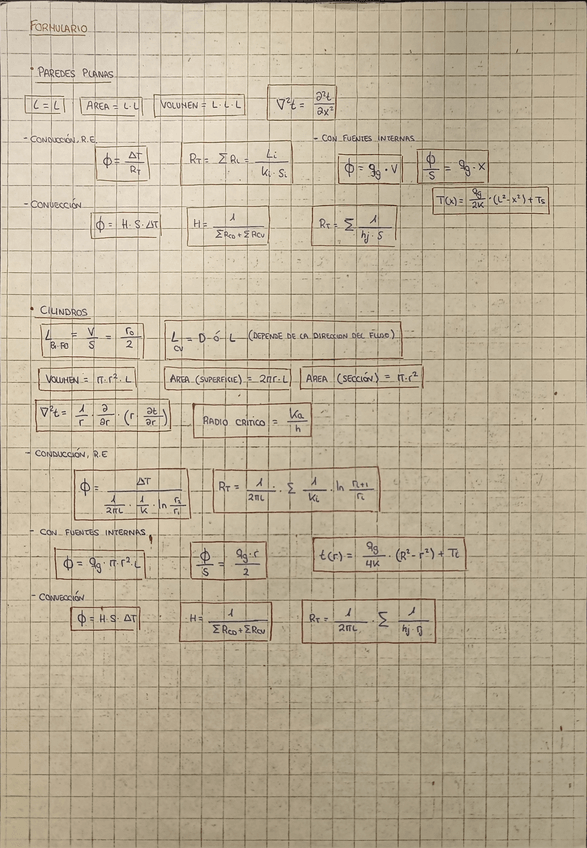 FORMULARIO
* PAREDES PLANAS
L = L   AREA = L·L   VOLUMEN = L·L·L   ∇²t = ∂²t/∂x²
- CONDUCCIÓN, R.E.   - CON FUENTES INTERNAS
ϕ = ΔT/R_T   R_T = ΣR_i = L_i/(K_i·S_i)   ϕ = q_g·V   ϕ/S = q_g·x
T(x) = q_g/2K·(L²-x²)+T_s
- CONVECCIÓN
ϕ = H·S·ΔT   H = 1/(ΣR_CD+ΣR_CV)   R_T = Σ 1/(h_j·S)
* CILINDROS
L_B.FO = V/S = r_0/2   L_CV = D Ó L (DEPENDE DE LA DIRECCION DEL FLUIDO)
VOLUMEN = π·r²·L   AREA (SUPERFICIE) = 2πr·L   AREA (SECCIÓN) = π·r²
∇²t = 1/r·∂/∂r·(r·∂t/∂r)   RADIO CRITICO = K_a/h
- CONDUCCIÓN, R.E
ϕ = ΔT/(1/2πL·1/K·ln r_2/r_1)   R_T = 1/2πL·Σ 1/K_i·ln r_i+1/r_i
- CON FUENTES INTERNAS
ϕ = q_g·π·r²·L   ϕ/S = q_g·r/2   t(r) = q_g/4K·(R²-r²)+T_i
- CONVECCIÓN
ϕ = H·S·ΔT   H = 1/(ΣR_CD+ΣR_CV)   R_T = 1/2πL·Σ 1/(h_j·r_j)